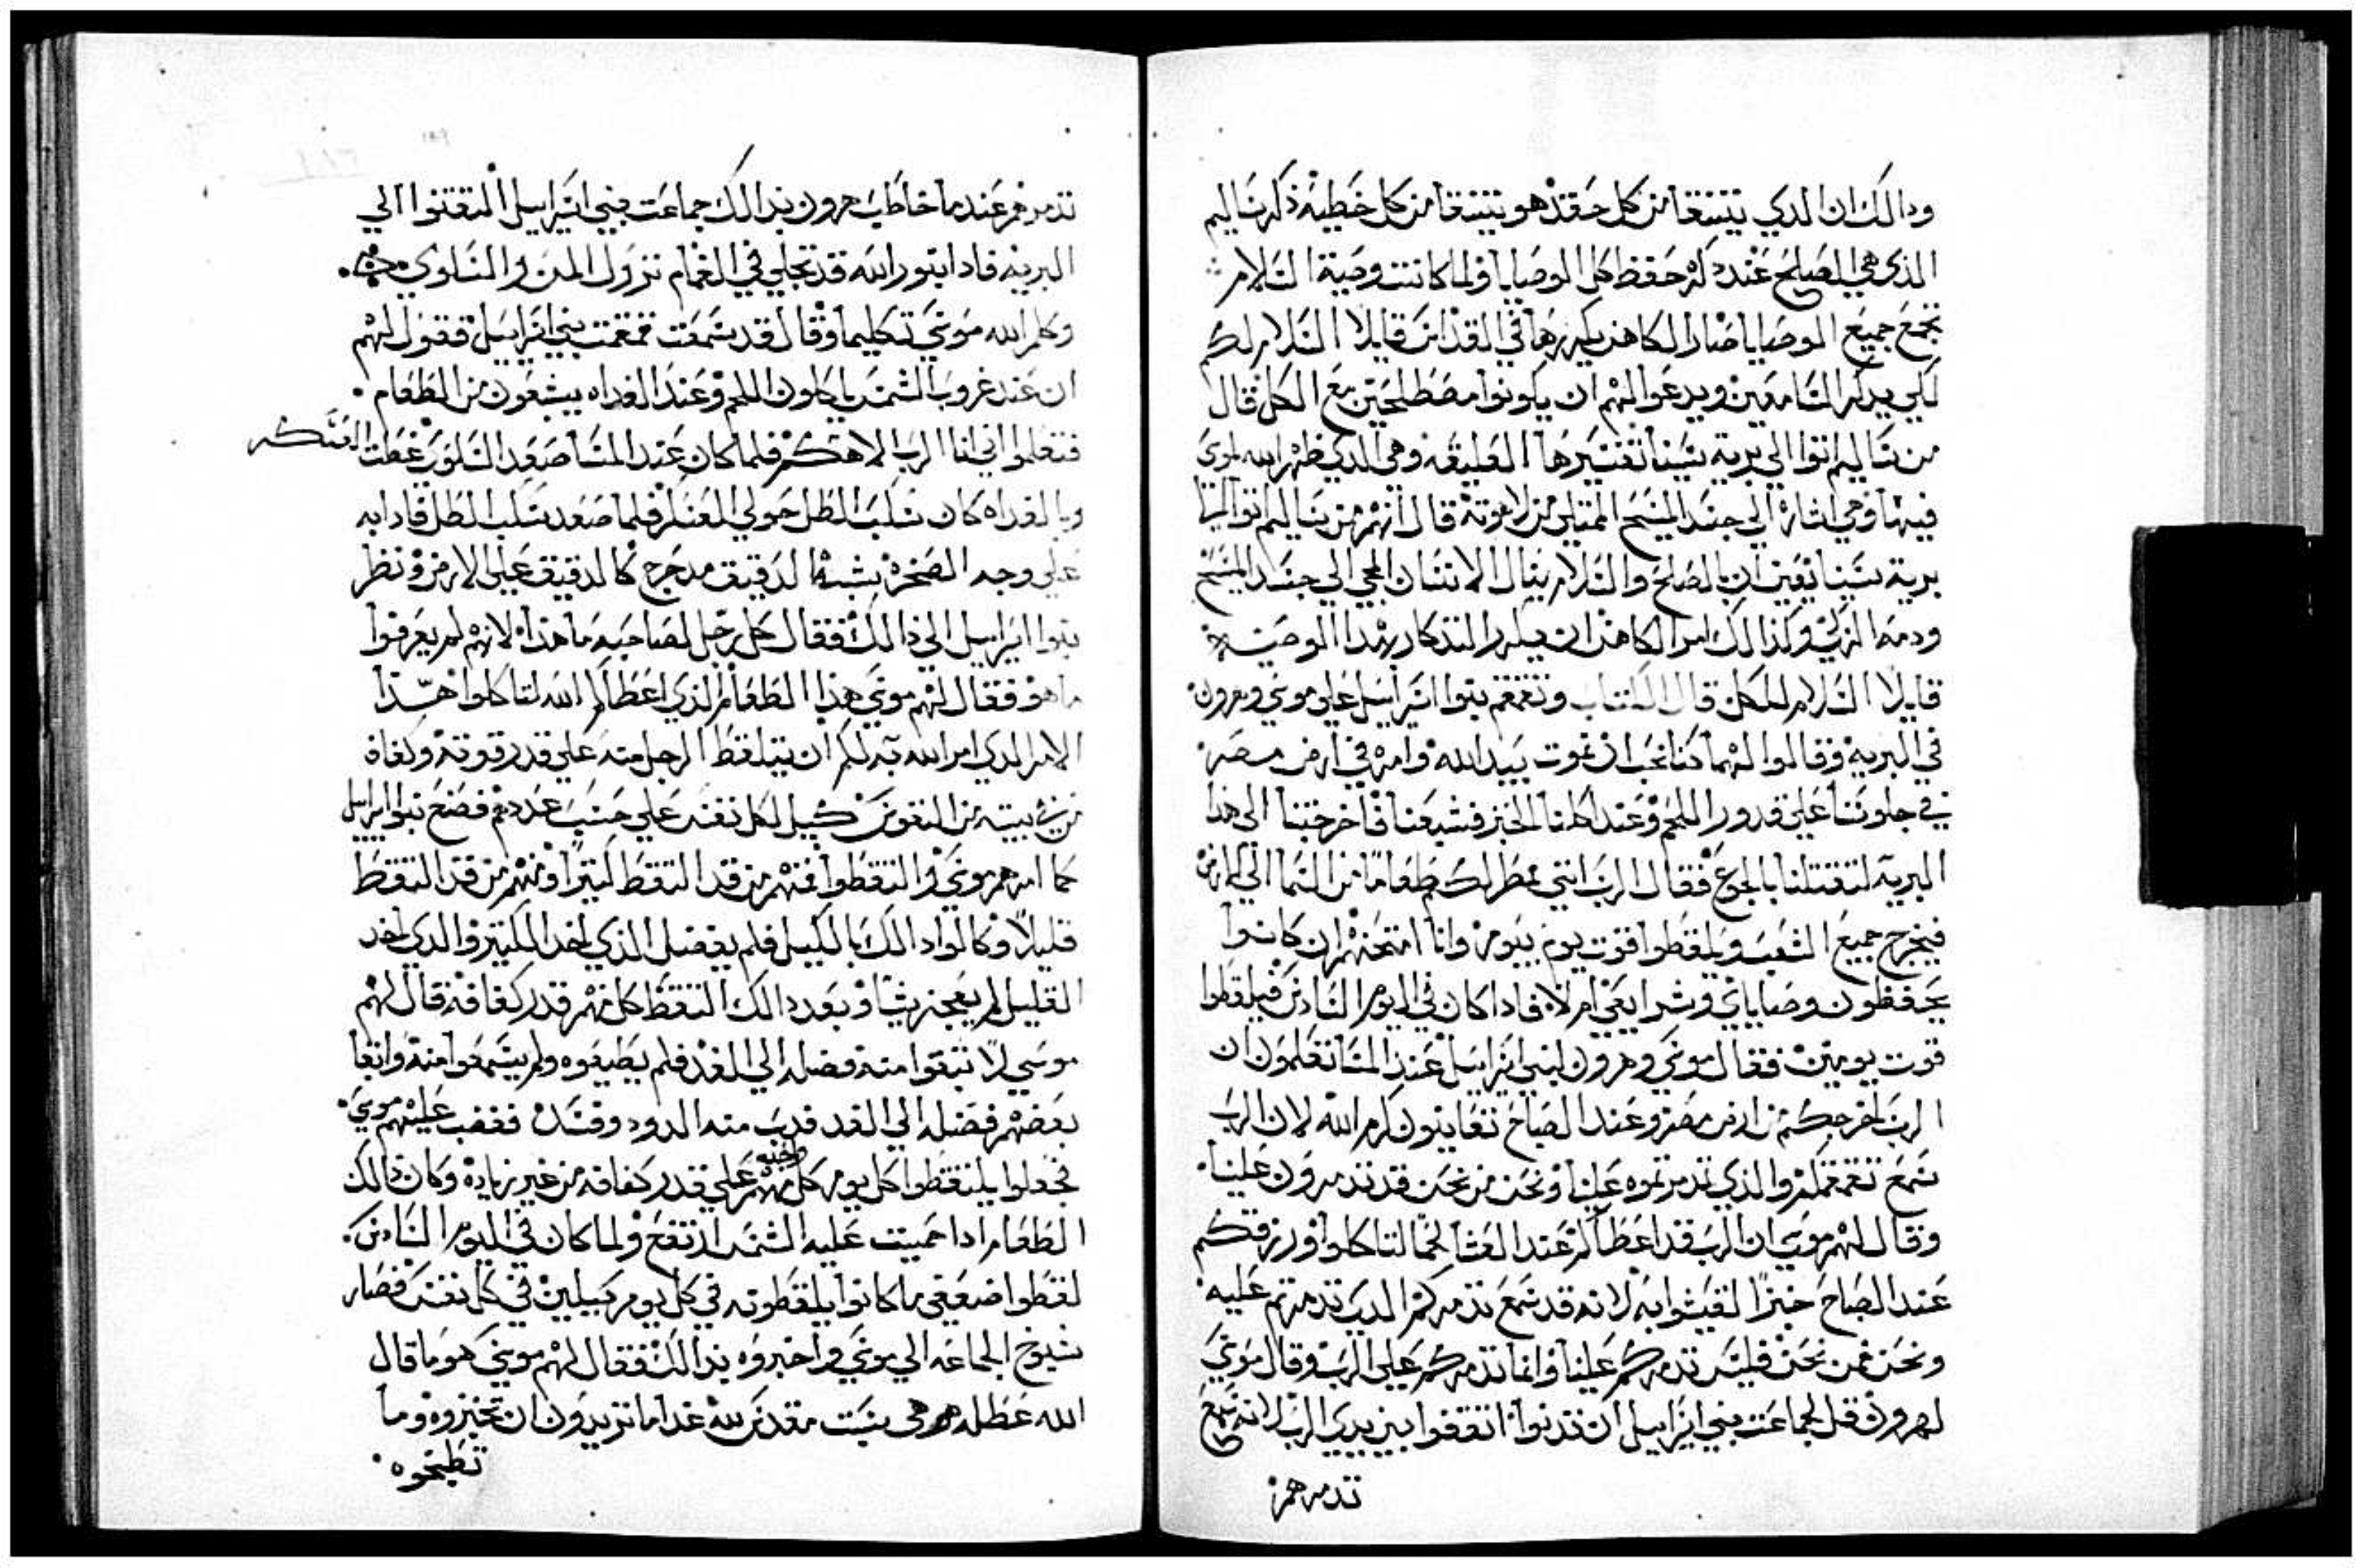 ودالك ان الدي يتنقا من كل حقد هو يتنقا من كل خطية ذكر ساليم
الذي هي الصلح عند ذكره حفظ كل الوصايا ولما كانت وصية السلام
تجمع جميع الوصايا صار الكاهن يكررها في القداس قايلا السلام لكم
لكي يدكر السامعين ويدعوا لهم ان يكونوا مصطلحين مع الكل قال
من ساليم اتوا الي برية سينا تفسيرها العليقه وهي الدي ظهر الله لموسي
فيها وهي اشارة الي جسد المسيح الممتلي من لاهوته قال انهم من ساليم اتوا الي
برية سينا يعني ان بالصلح والسلام ينال الانسان المجي الي جسد المسيح
ودمه الزكي وكذالك امر الكاهن ان يكرر التدكار بهدا الوصية
قايلا السلام للكل قال الكتاب وتقمقم بنوا اسراييل علي موسي وهرون
في البرية وقالوا لهما كنا نحب ان نموت بيد الله وامره في ارض مصر
في جلوسنا علي قدور اللحم وعند اكلنا الخبز فشبعنا فاخرجتنا الي هدا
البرية لتقتلنا بالجوع فقال الرب انني ممطر لكم طعاما من السما الي الارض
فيخرج جميع الشعب ويلقطوا قوت يوم بيوم وانا امتحنهم ان كانوا
يحفظون وصاياي وشرايعي ام لا فادا كان في اليوم السادس فيلقطوا
قوت يومين فقال موسي وهرون لبني اسراييل عند المسا تعلمون ان
الرب اخرجكم من ارض مصر وعند الصباح تعاينون كرم الله لان الرب
سمع تقمقمكم والذي تدمرتموه علينا ونحن من نحن قد تدمرون علينا
وقال لهم موسي ان الرب قد اعطاكم عند العشا لحما لتاكلوا ورزقكم
عند الصباح خبزا لتعيشوا به لانه قد سمع تدمركم الدي تدمرتم عليه
ونحن فمن نحن فليس تدمركم علينا وانما تدمركم علي الرب وقال موسي
لهرون قل لجماعت بني اسراييل ان تدنوا اتقفوا بين يدي الرب لانه سمع
تدمرهم
تدمرهم عند ما خاطب هرون بدالك جماعت بني اسراييل التفتوا الي
البرية فادا بنور الله قد تجلي في الغمام نزول المن والسلوي
وكلم الله موسي تكليما وقال قد سمعت تقمقمت بني اسراييل فقول لهم
ان عند غروب الشمس ياكلون اللحم وعند الغداه يشبعون من الطعام
فتعلموا اني انا الرب الاهكم فلما كان عند المسا صعد السلوي غطت العسكر
وبالغداه كان سكب الطل حولي العسكر فلما صعد سكب الطل فادا به
علي وجه الصخرة يشبه الدقيق مدحرج كالدقيق علي الارض ونظر
بنوا اسراييل الي ذالك فقال كل رجل لصاحبه ما هذا لانهم لم يعرفوا
ما هو فقال لهم موسي هذا الطعام الذي اعطاكم الله لتاكلوا هذا
الامر الدي امر الله به لكم ان يتلقط الرجل منه علي قدر قوته وكفافه
من في بيته من النفوس كيل لكل نفس علي حسب عددهم فصنع بنوا اسراييل
كما امرهم موسي والتقطوا فمنهم من قد التقط كتيرا ومنهم من قد التقط
قليلا وكالوا دالك بالكيل فلم يفضل الذي اخد الكتير والدي اخد
القليل لم يعجز شيا وبعد دالك التقط كل منهم قدر كفافه قال لهم
موسي لا تبقوا منه فضله الي الغد فلم يطيعوه ولم يسمعوا منه وابقا
بعضهم فضله الي الغد فدب منه الدود وفسد فغضب عليهم موسي
فجعلوا يلتقطوا كل يوم كل واحد منهم علي قدر كفافه من غير زيادة وكان ذالك
الطعام ادا حميت عليه الشمس ارتفع ولما كان في اليوم السادس
لقطوا ضعفي ما كانوا يلقطونه في كل يوم كيلين في كل نفس فصار
شيوخ الجماعه الي موسي واخبروه بدالك فقال لهم موسي هو ما قال
الله عطله هي سبت مقدس لله غدا ما تريدون ان تخبزوه وما
تطبخوه